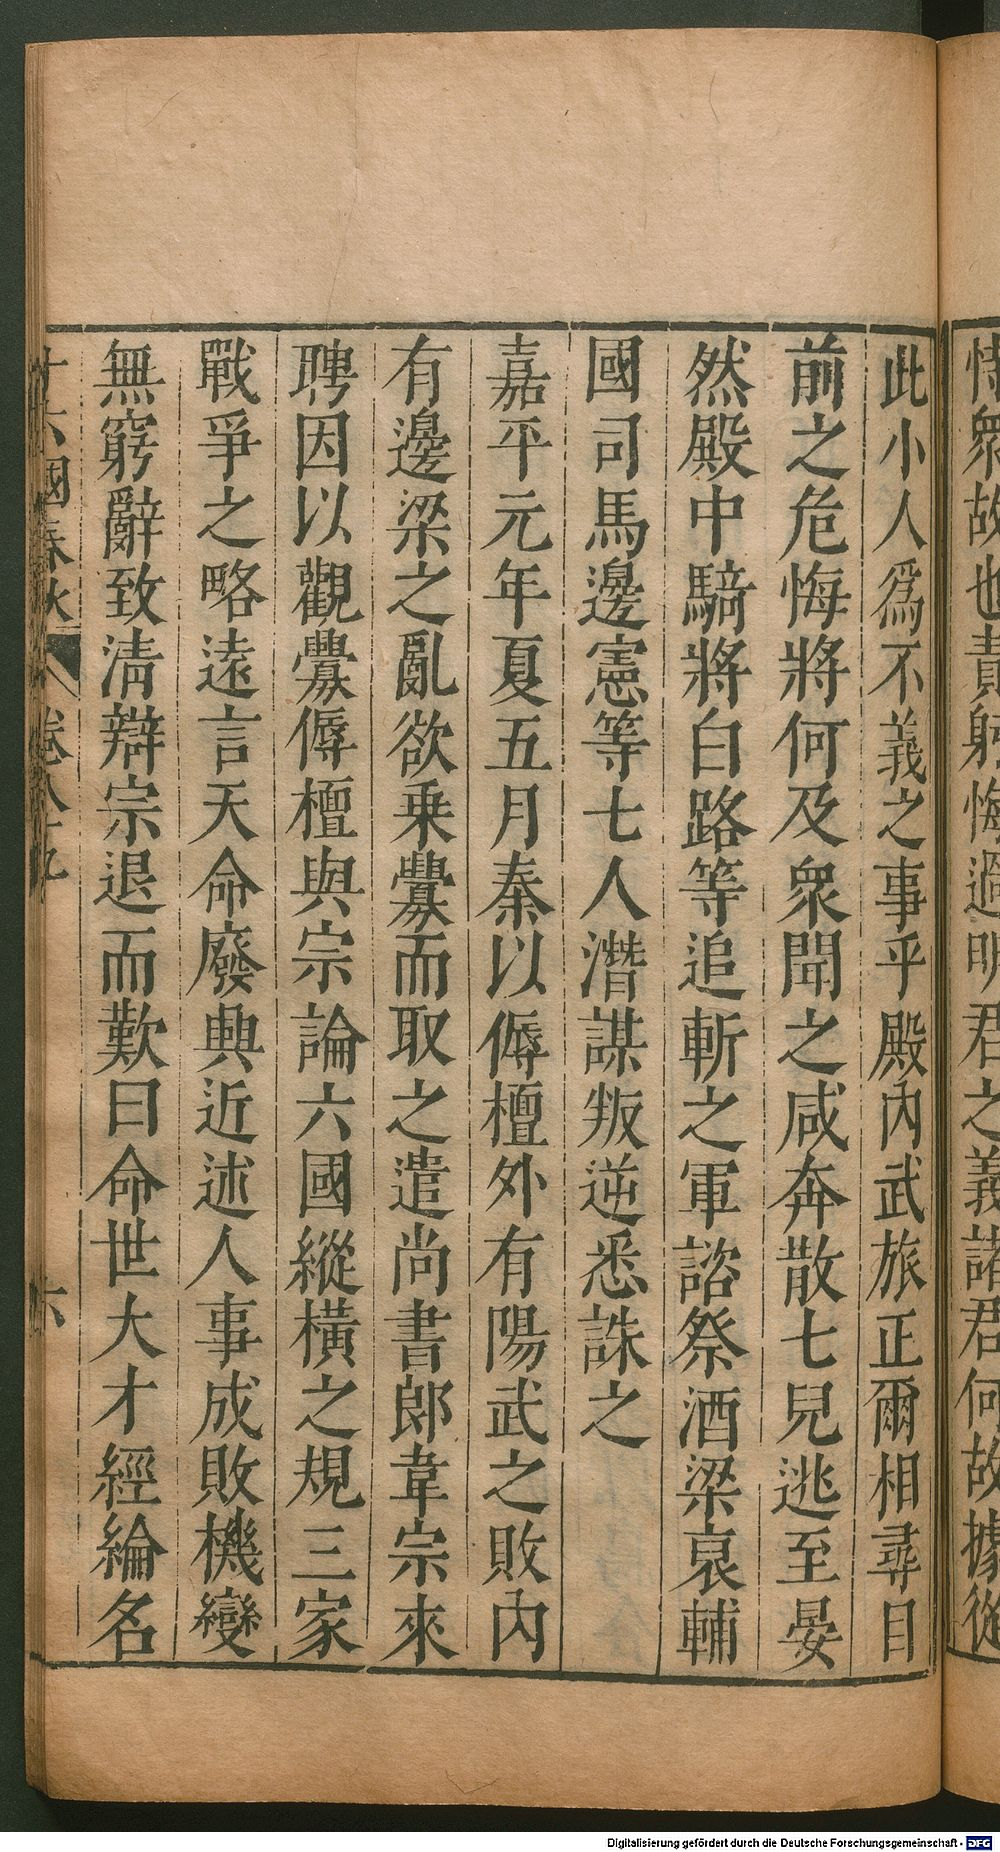 悔衆故也責躬悔過明君之義諸君何故據從
此小人爲不義之事乎殿內武旅正爾相尋目
前之危悔將何及衆聞之咸奔散七兒逃至晏
然殿中騎將白路等追斬之軍諮祭酒梁裒輔
國司馬邊憲等七人潛謀叛逆悉誅之
嘉平元年夏五月秦以傉檀外有陽武之敗內
有邊梁之亂欲乗釁而取之遣尚書郞韋宗來
聘因以觀釁傉檀與宗論六國縱橫之規三家
戰爭之略遠言天命廢興近述人事成敗機變
無窮辭致清辯宗退而歎曰命世大才經綸名
十六國春秋 卷八十九 六
Digitalisierung gefördert durch die Deutsche Forschungsgemeinschaft - DFG